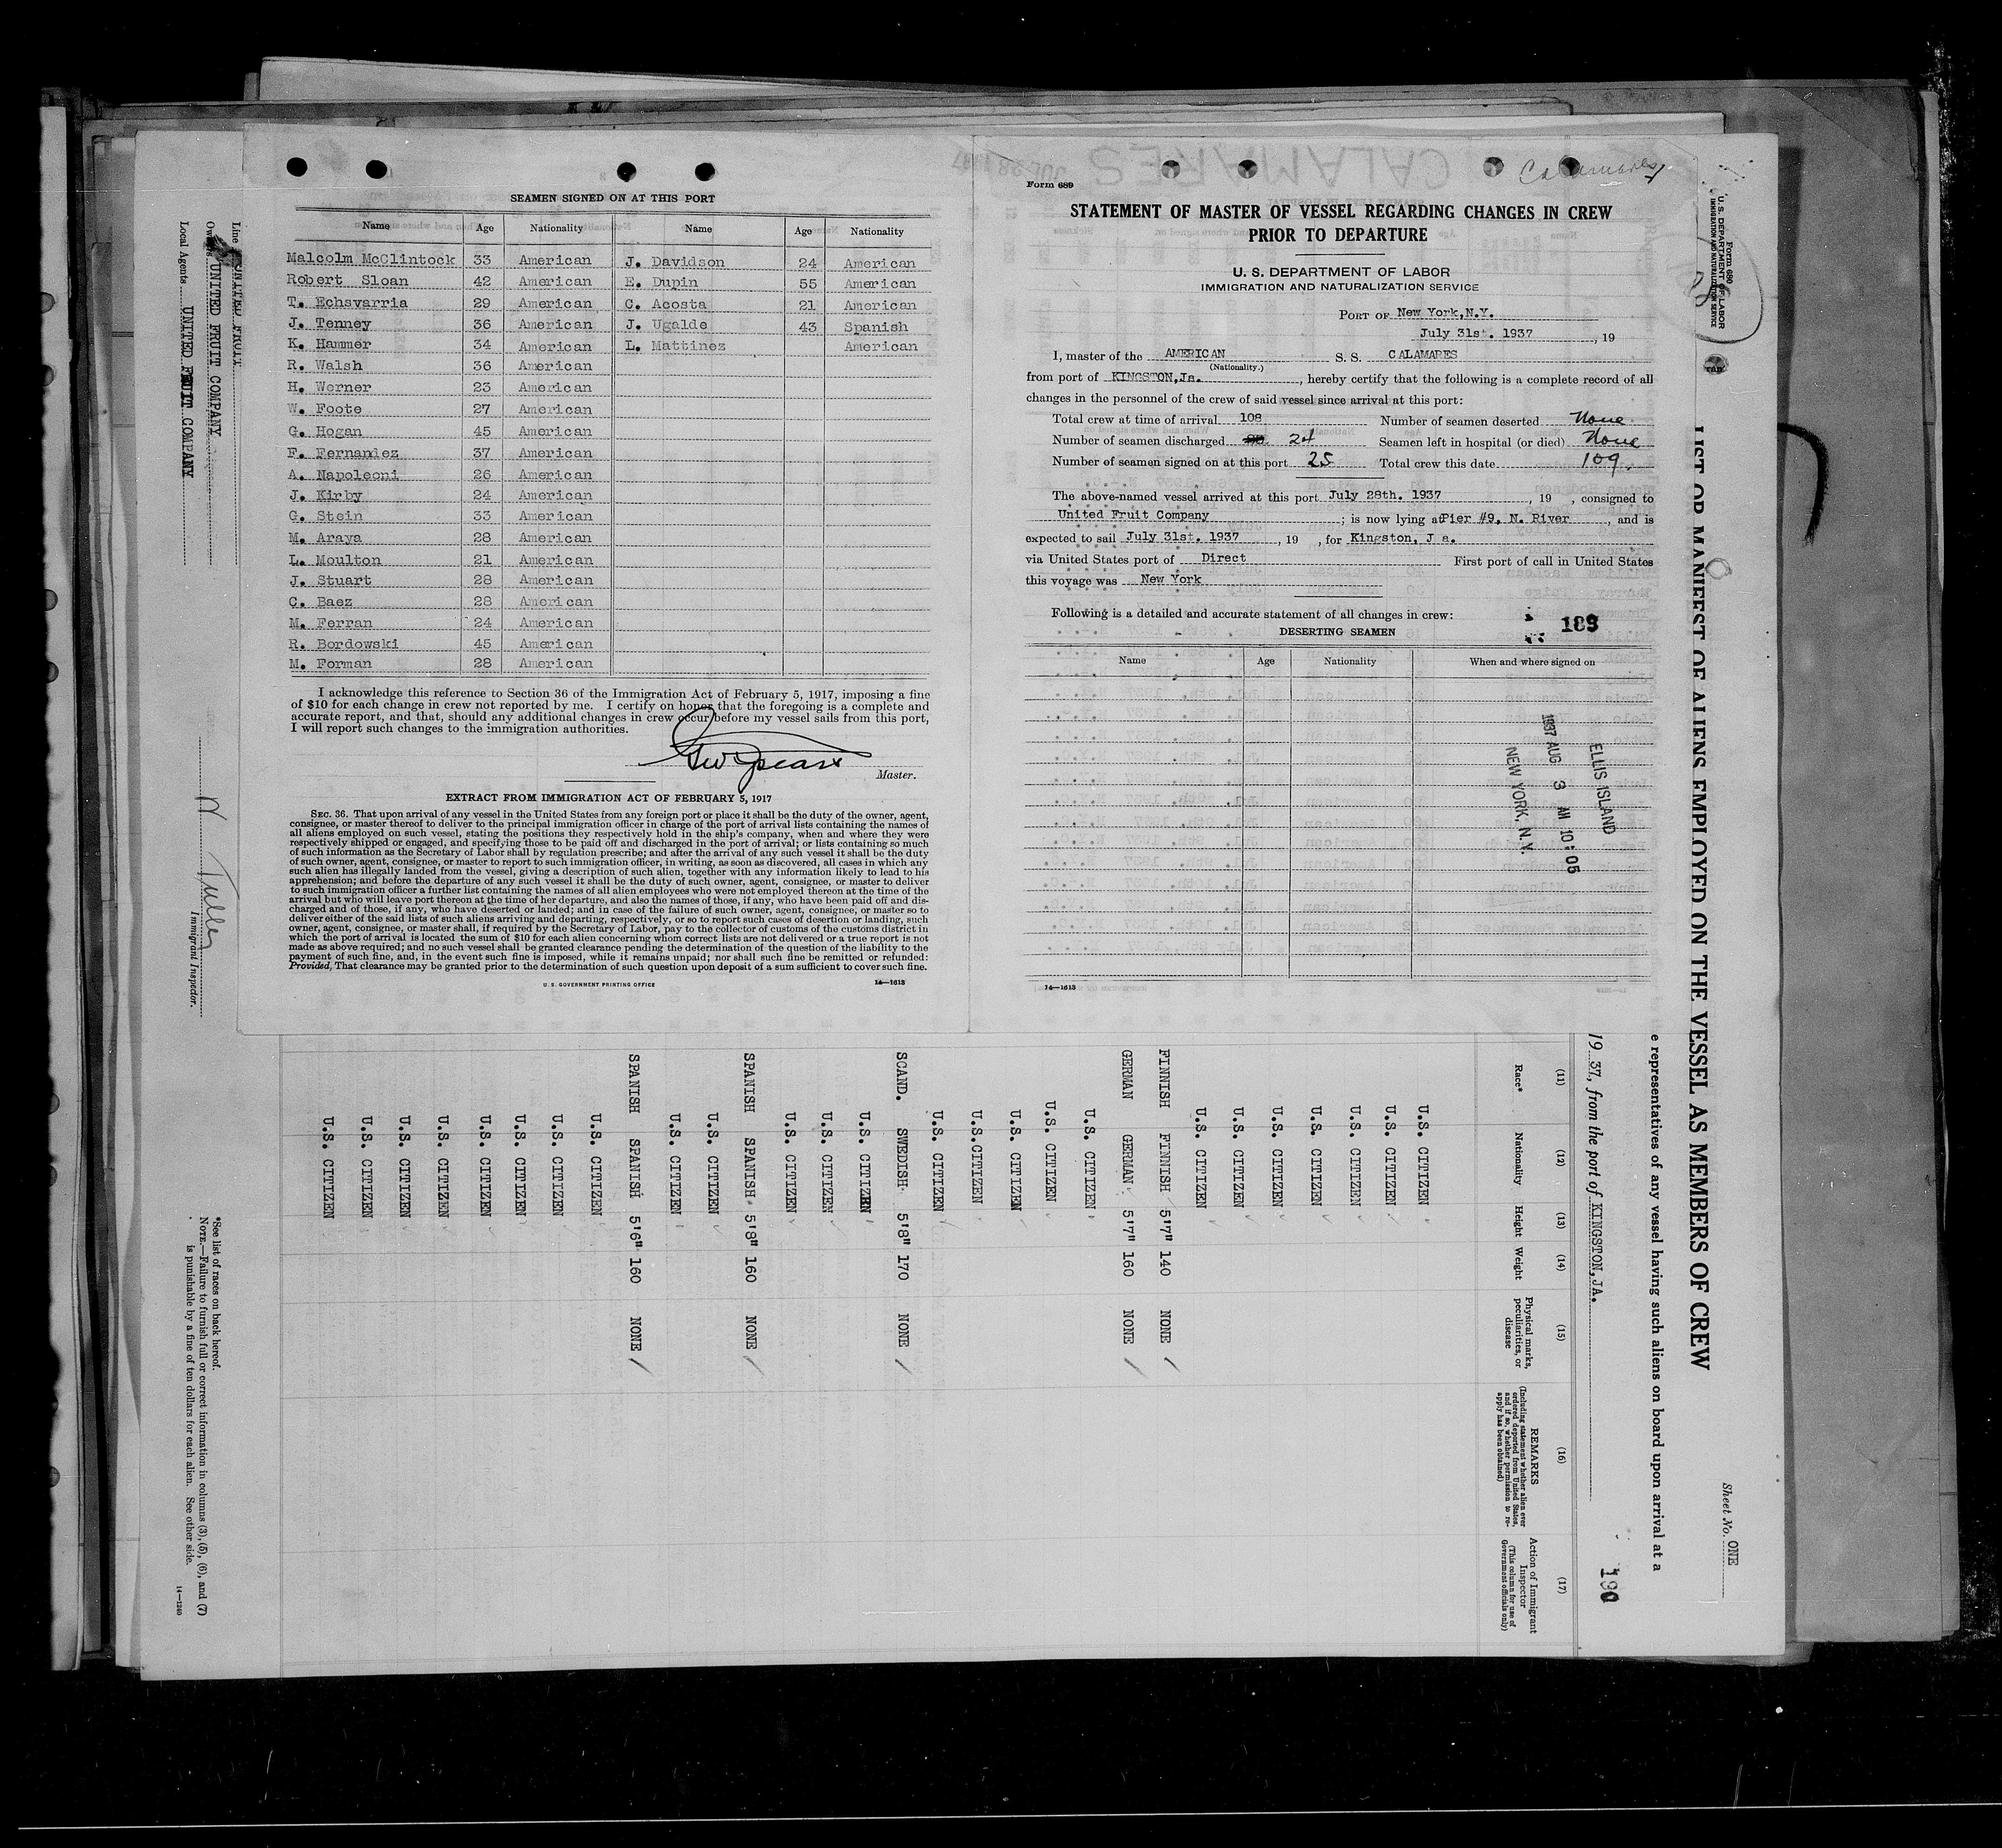 SEAMEN SIGNED ON AT THIS PORT
Name Age Nationality Name Age Nationality
Malcolm McClintock 33 American J. Davidson 24 American
Robert Sloan 42 American E. Dupin 55 American
T. Echsvarria 29 American C. Acosta 21 American
J. Tenney 36 American J. Ugalde 43 Spanish
K. Hammer 34 American L. Mattinez American
R. Walsh 36 American
H. Werner 23 American
W. Foote 27 American
G. Hogan 45 American
F. Fernandez 37 American
A. Napoleoni 26 American
J. Kirby 24 American
G. Stein 33 American
M. Araya 28 American
L. Moulton 21 American
J. Stuart 28 American
C. Baez 28 American
M. Ferran 24 American
R. Bordowski 45 American
M. Forman 28 American
I acknowledge this reference to Section 36 of the Immigration Act of February 5, 1917, imposing a fine
of $10 for each change in crew not reported by me. I certify on honor that the foregoing is a complete and
accurate report, and that, should any additional changes in crew occur before my vessel sails from this port,
I will report such changes to the immigration authorities.
Master.
EXTRACT FROM IMMIGRATION ACT OF FEBRUARY 5, 1917
SEC. 36. That upon arrival of any vessel in the United States from any foreign port or place it shall be the duty of the owner, agent,
consignee, or master thereof to deliver to the principal immigration officer in charge of the port of arrival lists containing the names of
all aliens employed on such vessel, stating the positions they respectively hold in the ship's company, when and where they were
respectively shipped or engaged, and specifying those to be paid off and discharged in the port of arrival; or lists containing so much
of such information as the Secretary of Labor shall by regulation prescribe; and after the arrival of any such vessel it shall be the duty
of such owner, agent, consignee, or master to report to such immigration officer, in writing, as soon as discovered, all cases in which any
such alien has illegally landed from the vessel, giving a description of such alien, together with any information likely to lead to his
apprehension; and before the departure of any such vessel it shall be the duty of such owner, agent, consignee, or master to deliver
to such immigration officer a further list containing the names of all alien employees who were not employed thereon at the time of the
arrival but who will leave port thereon at the time of her departure, and also the names of those, if any, who have been paid off and dis-
charged and of those, if any, who have deserted or landed; and in case of the failure of such owner, agent, consignee, or master so to
deliver either of the said lists of such aliens arriving and departing, respectively, or so to report such cases of desertion or landing, such
owner, agent, consignee, or master shall, if required by the Secretary of Labor, pay to the collector of customs of the customs district in
which the port of arrival is located the sum of $10 for each alien concerning whom correct lists are not delivered or a true report is not
made as above required; and no such vessel shall be granted clearance pending the determination of the question of the liability to the
payment of such fine, and, in the event such fine is imposed, while it remains unpaid; nor shall such fine be remitted or refunded:
Provided, That clearance may be granted prior to the determination of such question upon deposit of a sum sufficient to cover such fine.
U. S. GOVERNMENT PRINTING OFFICE 14—1613
Calamares
Form 689
STATEMENT OF MASTER OF VESSEL REGARDING CHANGES IN CREW
PRIOR TO DEPARTURE
U. S. DEPARTMENT OF LABOR
IMMIGRATION AND NATURALIZATION SERVICE
PORT OF New York, N.Y.
July 31st. 1937, 19
I, master of the AMERICAN S. S. CALAMARES
(Nationality.)
from port of KINGSTON, Ja., hereby certify that the following is a complete record of all
changes in the personnel of the crew of said vessel since arrival at this port:
Total crew at time of arrival 108 Number of seamen deserted None
Number of seamen discharged 24 Seamen left in hospital (or died) None
Number of seamen signed on at this port 25 Total crew this date 109.
The above-named vessel arrived at this port July 28th. 1937, 19 , consigned to
United Fruit Company; is now lying at Pier #9, N. River, and is
expected to sail July 31st. 1937, 19 , for Kingston, J a.
via United States port of Direct First port of call in United States
this voyage was New York
Following is a detailed and accurate statement of all changes in crew:
189
DESERTING SEAMEN
Name Age Nationality When and where signed on
ELLIS ISLAND
1937 AUG 3 AM 10:05
NEW YORK, N.Y.
14—1613
Form 680
U. S. DEPARTMENT OF LABOR
IMMIGRATION AND NATURALIZATION SERVICE
LIST OR MANIFEST OF ALIENS EMPLOYED ON THE VESSEL AS MEMBERS OF CREW
Sheet No. ONE
e representatives of any vessel having such aliens on board upon arrival at a
19 37, from the port of KINGSTON, JA.
190
(11) (12) (13) (14) (15) (16) (17)
Race* Nationality Height Weight Physical marks, peculiarities, or disease REMARKS (Including statement whether alien ever ordered deported from United States, and if so, whether permission to re-apply has been obtained) Action of Immigrant Inspector (This column for use of Government officials only)
U.S. CITIZEN
U.S. CITIZEN
U.S. CITIZEN
U.S. CITIZEN
U.S. CITIZEN
U.S. CITIZEN
U.S. CITIZEN
FINNISH FINNISH 5'7" 140 NONE
GERMAN GERMAN 5'7" 160 NONE
U.S. CITIZEN
U.S. CITIZEN
U.S. CITIZEN
U.S.CITIZEN
U.S. CITIZEN
SCAND. SWEDISH 5'8" 170 NONE
U.S. CITIZEN
U.S. CITIZEN
U.S. CITIZEN
SPANISH SPANISH 5'8" 160 NONE
U.S. CITIZEN
U.S. CITIZEN
SPANISH SPANISH 5'6" 160 NONE
U.S. CITIZEN
U.S. CITIZEN
U.S. CITIZEN
U.S. CITIZEN
U.S. CITIZEN
U.S. CITIZEN
U.S. CITIZEN
U.S. CITIZEN
Line UNITED FRUIT
Owners UNITED FRUIT COMPANY
Local Agents UNITED FRUIT COMPANY
Immigrant Inspector.
*See list of races on back hereof.
NOTE.—Failure to furnish full or correct information in columns (3), (5), (6), and (7)
is punishable by a fine of ten dollars for each alien. See other side.
14—1240